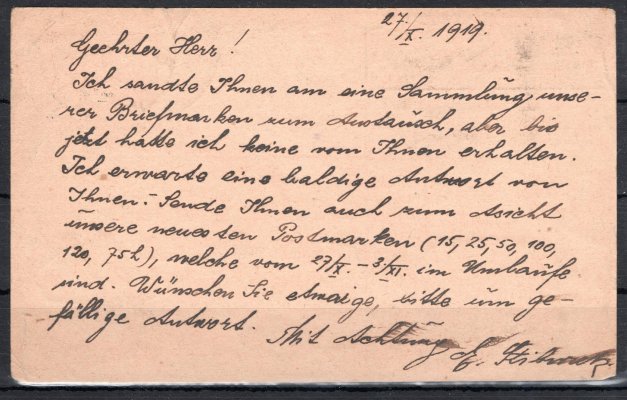 27/X. 1919.
Geehrter Herr!
Ich sandte Ihnen am eine Sammlung unse-
rer Briefmarken zum Austausch, aber bis
jetzt hatte ich keine vom Ihnen erhalten.
Ich erwarte eine baldige Antwort von
Ihnen. - Sende Ihnen auch zum Asicht
unsere neuesten Postmarken (15, 25, 50, 100,
120, 75h), welche vom 27/X. - 3./XI. im Umlaufe
sind. Wünschen Sie etwaige, bitte um ge-
fällige Antwort.
Mit Achtung E.